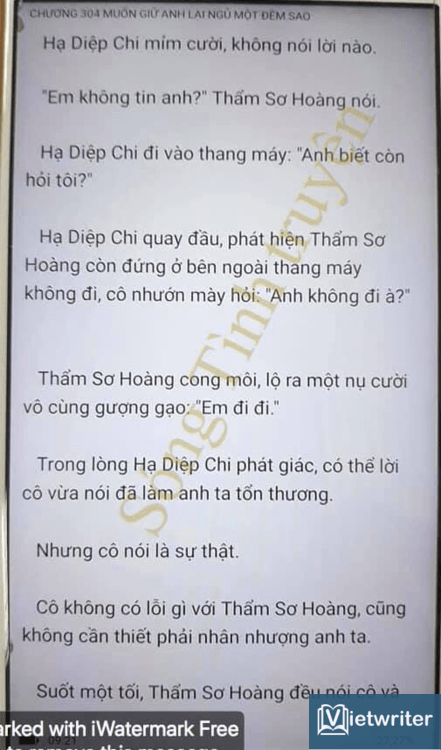 CHƯƠNG 304 MUỐN GIỮ ANH LẠI NGỦ MỘT ĐÊM SAO
Hạ Diệp Chi mỉm cười, không nói lời nào.
"Em không tin anh?" Thẩm Sơ Hoàng nói.
Hạ Diệp Chi đi vào thang máy: "Anh biết còn
hỏi tôi?"
Hạ Diệp Chi quay đầu, phát hiện Thẩm Sơ
Hoàng còn đứng ở bên ngoài thang máy
không đi, cô nhướn mày hỏi: "Anh không đi à?"
Thẩm Sơ Hoàng cong môi, lộ ra một nụ cười
vô cùng gượng gạo: "Em đi đi."
Trong lòng Hạ Diệp Chi phát giác, có thể lời
cô vừa nói đã làm anh ta tổn thương.
Nhưng cô nói là sự thật.
Cô không có lỗi gì với Thẩm Sơ Hoàng, cũng
không cần thiết phải nhân nhượng anh ta.
Suốt một tối, Thẩm Sơ Hoàng đều nói cô và
Sủng Tình truyện
arked with iWatermark Free
09:21
Vietwriter